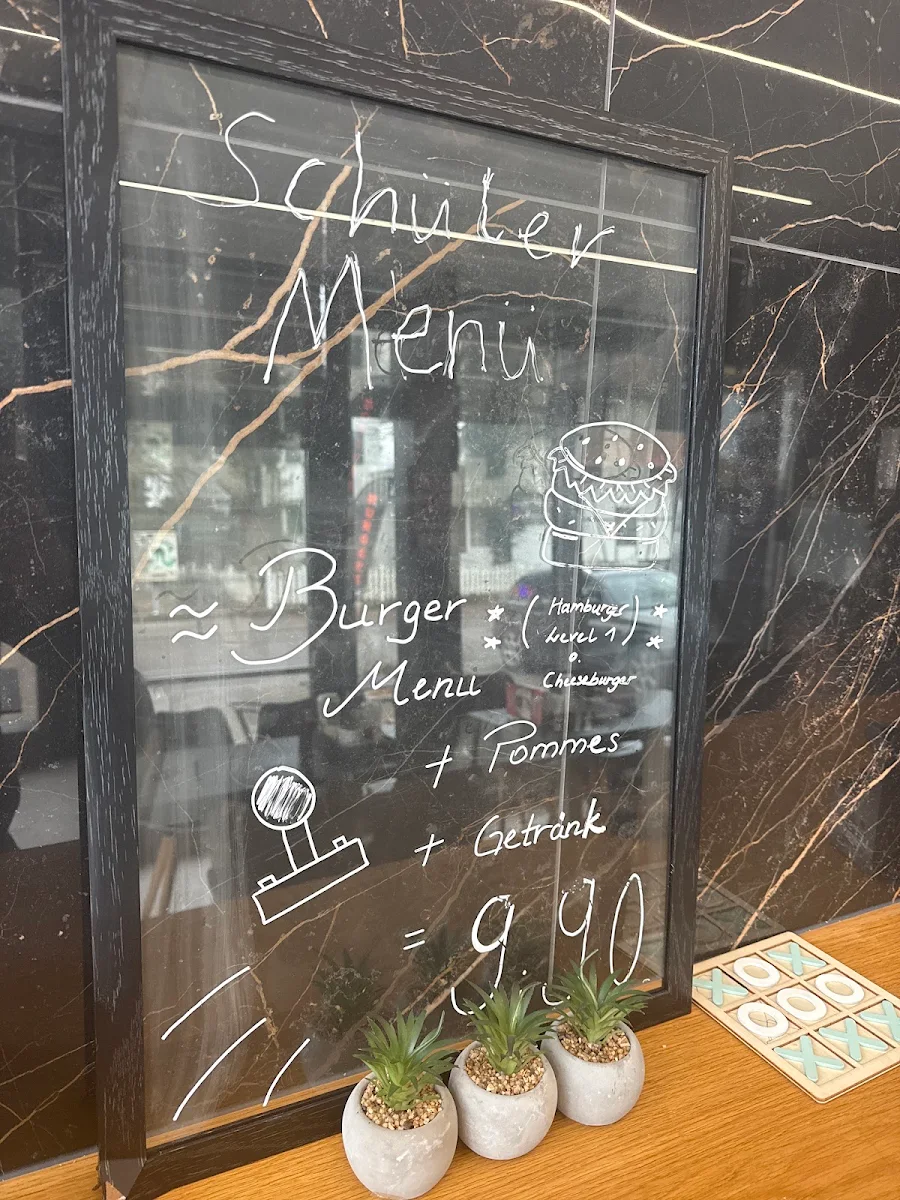 Schüler
Menü
≈ Burger * ( Hamburger ) *
* Level 1 *
o.
Menü Cheeseburger
+ Pommes
+ Getränk
= 9.90